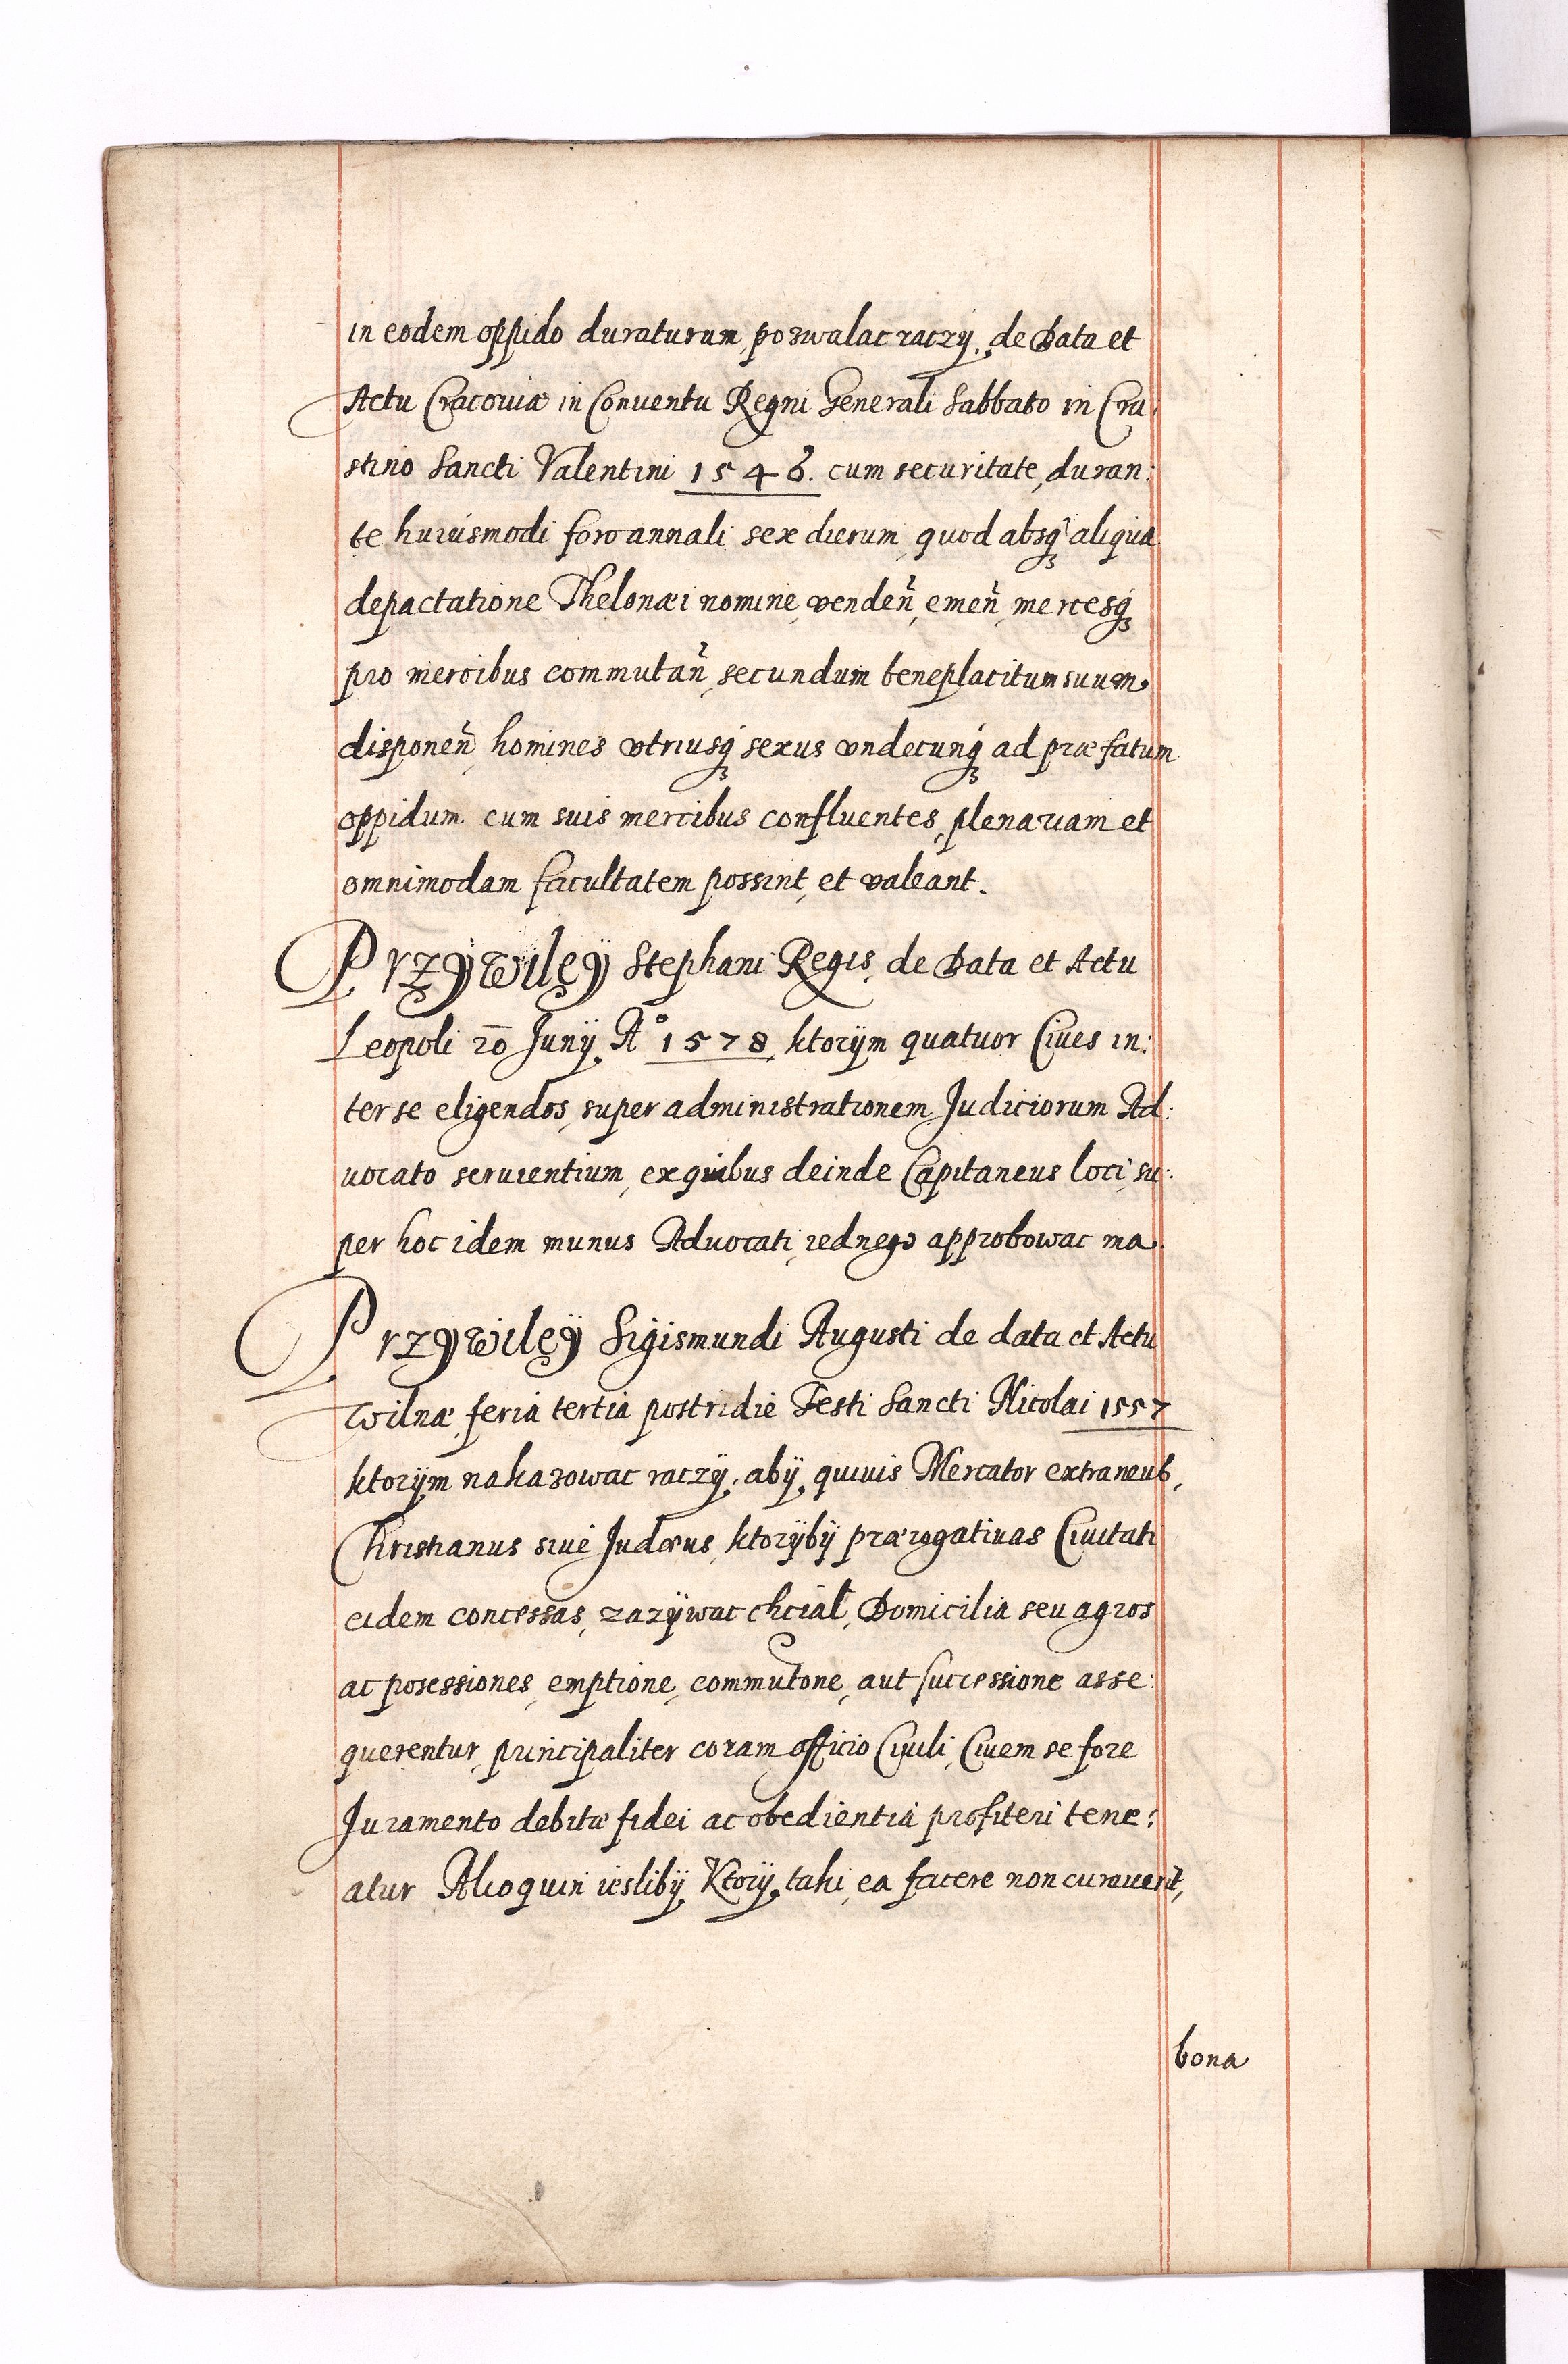 in eodem oppido duraturum, pozwalac raczÿ, de Data et
Actu Cracoviæ in Conventu Regni Generali Sabbato in Cra:
stino Sancti Valentini 1546. cum securitate, duran:
te huiúsmodi foro annali sex dierum, quod absq́ȝ aliqua
depactatione Thelonæi nomine, venden̄, emen̄, mercesq́ȝ
pro mercibus commutan̄, secundum beneplacitum suum
disponen̄, homines vtriusq́ȝ sexus vndecunq́ȝ ad præfatum
oppidum cum suis mercibus confluentes, plenariam et
omnimodam facultatem possint, et valeant.
Przÿwileÿ Stephani Regis, de Data et Actu
Leopoli 20 Junÿ A° 1578, ktorÿm quatuor Ciues in:
ter se eligendos, super administrationem Judiciorum Ad:
uocato seruientium, ex quibus deinde Capitaneus loci, su:
per hoc idem munus Aduocati, iednego approbowac ma.
Przÿwileÿ Sigismundi Augusti de data et Actu
Wilnæ, feria tertia postridie Festi Sancti Nicolai 1557
ktorÿm nakazowac raczÿ, abÿ, quiuis Mercator extraneus,
Christianus siué Judæus, ktorÿbÿ prærogatiuas Ciuitati
eidem concessas, zazÿwac chciał, Domicilia seu agros
ac posessiones, emptione, commutone, aut successione asse:
querentur, principaliter coram officio Ciuili, Ciuem se fore
Juramento debitæ fidei ac obedientiá profiteri tene:
atur Alioquin iesliby Ktorÿ, taki, ea facere non curauerit,
bona